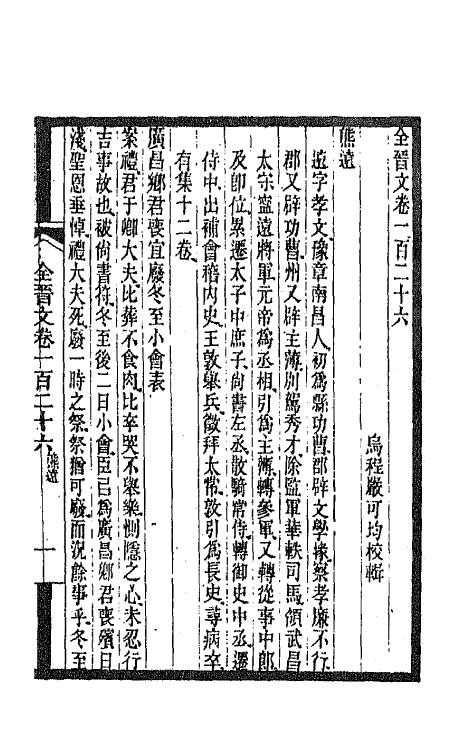 全晉文卷一百二十六
烏程嚴可均校輯
熊遠
遠字孝文豫章南昌人初爲縣功曹郡辟文學掾察孝廉不行
郡又辟功曹州又辟主薄別駕秀才除監軍華軼司馬領武昌
太守寧遠將軍元帝爲丞相引爲主薄轉參軍又轉從事中郎
及卽位累遷太子中庶子尚書左丞散騎常侍轉御史中丞遷
侍中出補會稽內史王敦舉兵徵拜太常敦引爲長史尋病卒
有集十二卷
廣昌鄉君喪宜廢冬至小會表
案禮君于卿大夫比葬不食肉比卒哭不舉樂惻隱之心未忍行
吉事故也被尚書符冬至後二日小會臣已爲廣昌鄉君喪殯日
淺聖恩垂悼禮大夫死廢一時之祭祭猶可廢而況餘事乎冬至
全晉文卷一百二十六 熊遠 一